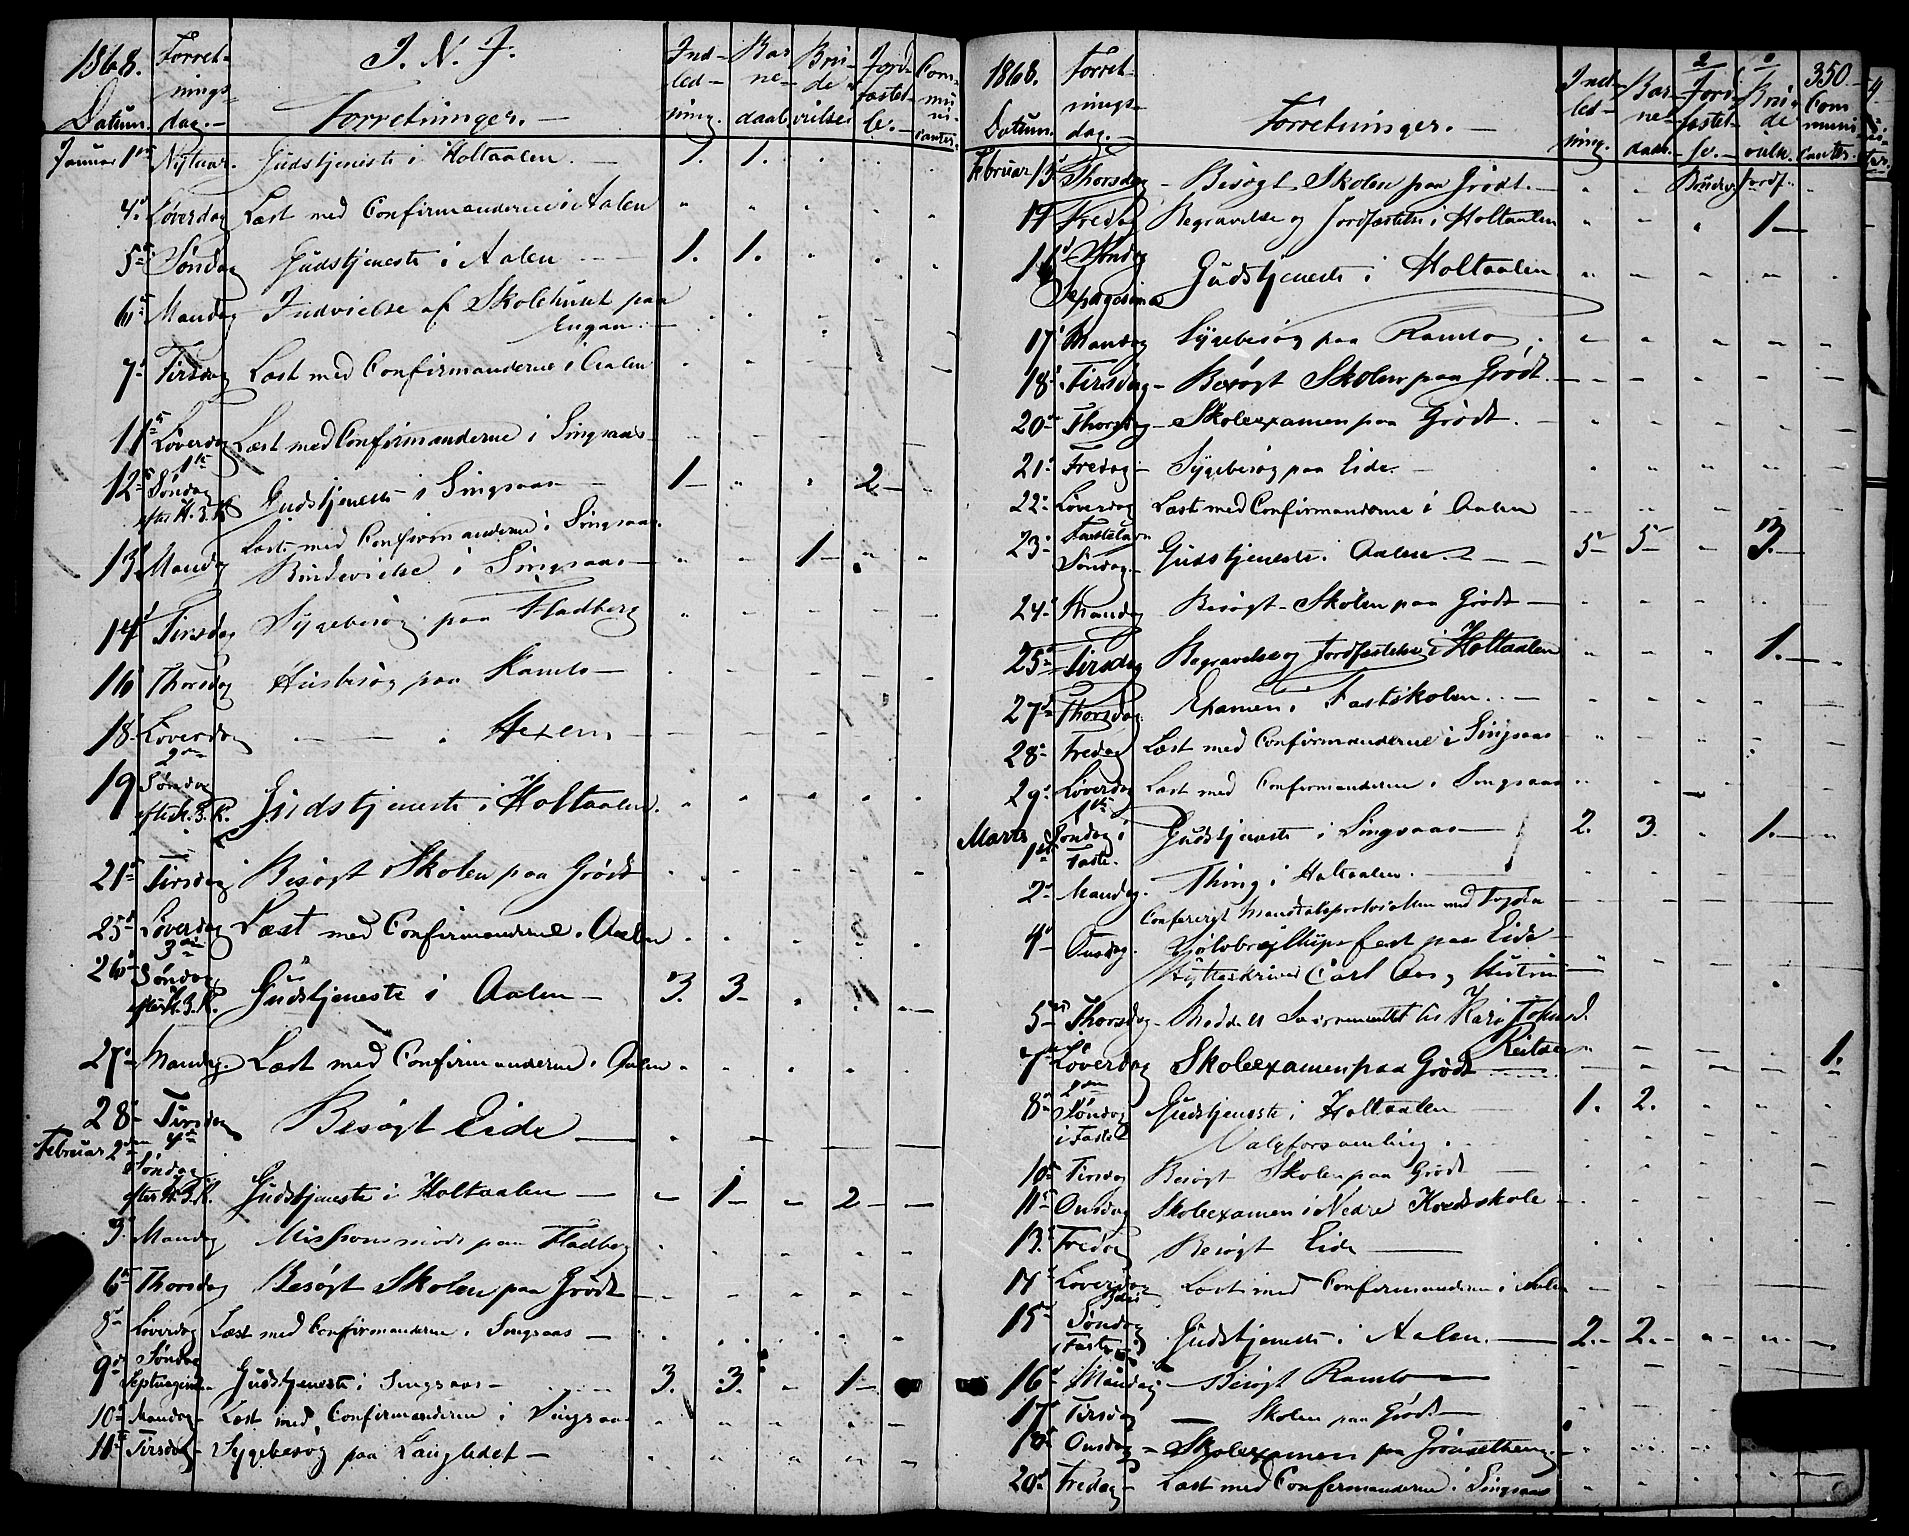 1868. Forret- I. N. J. Ind- Bar Bru- Jord- Com-
nings- led- ne- de fæstel- mu
Datum. dag. Forretninger. ning. daab vielse se. ni-
canter.
Januar 1 Nytaar. Gudstjeneste i Holtaalen. 1. 1.
4 Løverdag Læst med Confirmanderne i Aalen
5 Søndag Gudstjeneste i Aalen 1. 1.
6 Mandag Indvielse af Skolehuset paa
Engan.
7 Tirsdag Læst med Confirmanderne i Aalen
11 Løverdag Læst med Confirmanderne i Singsaas
12 1ste Søndag Gudstjeneste i Singsaas 1 2
efter H. 3. K.
13 Mandag Læst med Confirmanderne i Singsaas.
Brudevielse i Singsaas 1
14 Tirsdag Sygebesøg paa Fladberg
16 Thorsdag Husbesøg paa Ramlo
18 Løverdag — — Hexem
19 2den Søndag
efter H. 3. K. Gudstjeneste i Holtaalen.
21 Tirsdag Besøgt Skolen paa Grødt
25 Løverdag Læst med Confirmanderne i Aalen
26 3die Søndag
efter H. 3. K. Gudstjeneste i Aalen 3. 3
27 Mandag. Læst med Confirmanderne i Aalen
28 Tirsdag Besøgt Eide
Februar 2den 4de
Søndag
efter H. 3. K. Gudstjeneste i Holtaalen 1 2
3 Mandag Missionsmøde paa Fladberg
6 Thorsdag Besøgt Skolen paa Grødt
8 Løverdag Læst med Confirmanderne i Singsaas
9 Søndag
Septuagesima Gudstjeneste i Singsaas 3. 3. 1
10 Mandag Læst med Confirmanderne i Singsaas
11 Tirsdag Sygebesøg paa Langledet
1868. Forret- Ind- Bar- 2 Jord- 1 Bru- 350
nings- led- ne- fæstel- de Com
Datum. dag. Forretninger. ning. daab. se. vielse. muni-
canter.
Februar 13 Thorsdag Besøgt Skolen paa Grødt. Brudev. Jordf.
14 Fredag Begravelse og Jordfæstelse i Holtaalen 1
16 Søndag
Gudstjeneste i Holtaalen
17 Mandag Sygebesøg paa Ramlo
18 Tirsdag Besøgt Skolen paa Grødt.
20 Thorsdag Skoleexamen paa Grødt.
21 Fredag Sygebesøg paa Eide.
22 Løverdag Læst med Confirmanderne i Aalen
23 Fastelavn
Søndag Gudstjeneste i Aalen. 5 5 3.
24 Mandag Besøgt Skolen paa Grødt
25 Tirsdag Begravelse og Jordfæstelse i Holtaalen 1.
27 Thorsdag. Examen i Fastskolen.
28 Fredag Læst med Confirmanderne i Singsaas
29 Løverdag Læst med Confirmanderne i Singsaas
Marts 1 1ste Søndag i
Faste. Gudstjeneste i Singsaas 2. 3. 1.
2 Mandag. Thing i Holtaalen.
Confereret Mandtalsprotocollen med Fogden
4 Onsdag. Sølvbryllupsfest paa Eide
Hytteskriver Carl Aas og Hustru
5 Thorsdag Meddelt Sacramentet til Kari Johnsd.
Reitan 1.
7 Løverdag Skoleexamen paa Grødt
8 2den Søndag
i Faste Gudstjeneste i Holtaalen 1. 2.
Valgforsamling.
10 Tirsdag Besøgt Skolen paa Grødt
11 Onsdag Skoleexamen i Nedre Kredsskole
13 Fredag Besøgt Eide
14 Løverdag Læst med Confirmanderne i Aalen
15 3die Søndag
i Faste Gudstjeneste i Aalen. 2. 2.
16 Mandag Besøgt Ramlo
17 Tirsdag — Skolen paa Grødt
18 Onsdag Skoleexamen paa
20 Fredag Læst med Confirmanderne i Singsaas